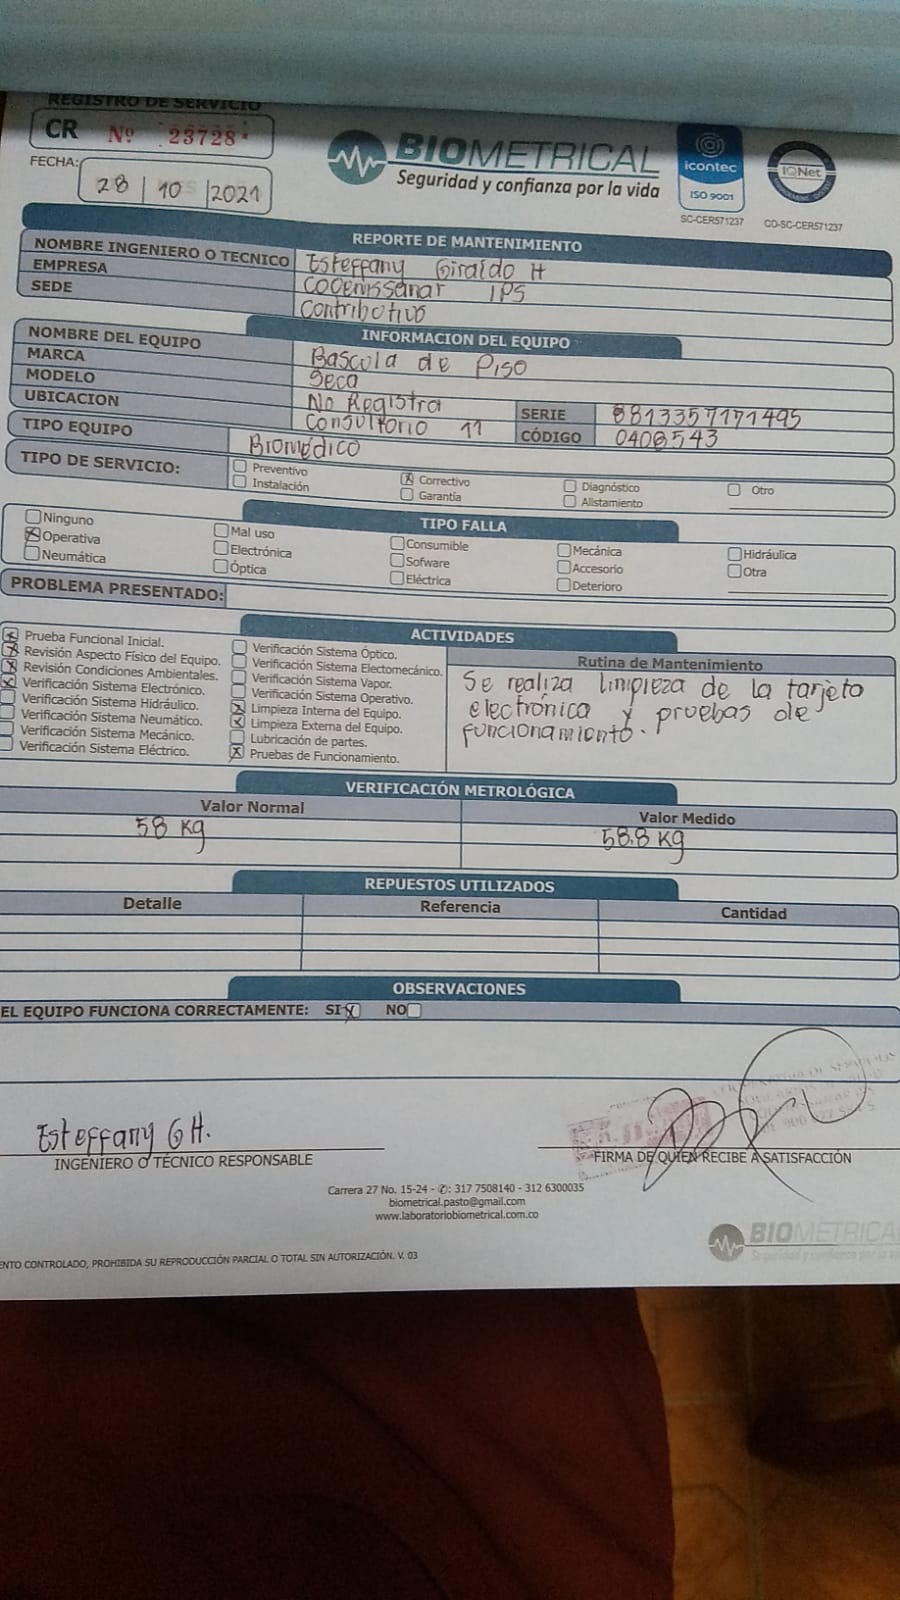 REGISTRO DE SERVICIO
CR Nº 23728
FECHA: 28 | 10 | 2021
BIOMETRICAL
Seguridad y confianza por la vida
icontec
ISO 9001
SC-CER571237
IQNet
CO-SC-CER571237
REPORTE DE MANTENIMIENTO
NOMBRE INGENIERO O TECNICO Esteffany Giraldo H
EMPRESA Cooemssanar IPS
SEDE Contributivo
INFORMACION DEL EQUIPO
NOMBRE DEL EQUIPO Bascula de Piso
MARCA Seca
MODELO No Registra
UBICACION Consultorio 11
SERIE 8813357171495
CÓDIGO 0408543
TIPO EQUIPO Biomédico
TIPO DE SERVICIO:
Preventivo
Correctivo
Diagnóstico
Otro
Instalación
Garantía
Alistamiento
TIPO FALLA
Ninguno
Mal uso
Consumible
Mecánica
Hidráulica
Operativa
Electrónica
Sofware
Accesorio
Otra
Neumática
Óptica
Eléctrica
Deterioro
PROBLEMA PRESENTADO:
ACTIVIDADES
Prueba Funcional Inicial.
Revisión Aspecto Físico del Equipo.
Revisión Condiciones Ambientales.
Verificación Sistema Electrónico.
Verificación Sistema Hidráulico.
Verificación Sistema Neumático.
Verificación Sistema Mecánico.
Verificación Sistema Eléctrico.
Verificación Sistema Óptico.
Verificación Sistema Electomecánico.
Verificación Sistema Vapor.
Verificación Sistema Operativo.
Limpieza Interna del Equipo.
Limpieza Externa del Equipo.
Lubricación de partes.
Pruebas de Funcionamiento.
Rutina de Mantenimiento
Se realiza limpieza de la tarjeta
electrónica y pruebas de
funcionamiento.
VERIFICACIÓN METROLÓGICA
Valor Normal
Valor Medido
58 Kg
58.8 Kg
REPUESTOS UTILIZADOS
Detalle
Referencia
Cantidad
OBSERVACIONES
EL EQUIPO FUNCIONA CORRECTAMENTE: SI X NO
Esteffany GH.
INGENIERO O TÉCNICO RESPONSABLE
FIRMA DE QUIEN RECIBE A SATISFACCIÓN
Carrera 27 No. 15-24 - ✆: 317 7508140 - 312 6300035
biometrical.pasto@gmail.com
www.laboratoriobiometrical.com.co
BIOMETRICAL
ENTO CONTROLADO, PROHIBIDA SU REPRODUCCIÓN PARCIAL O TOTAL SIN AUTORIZACIÓN. V. 03